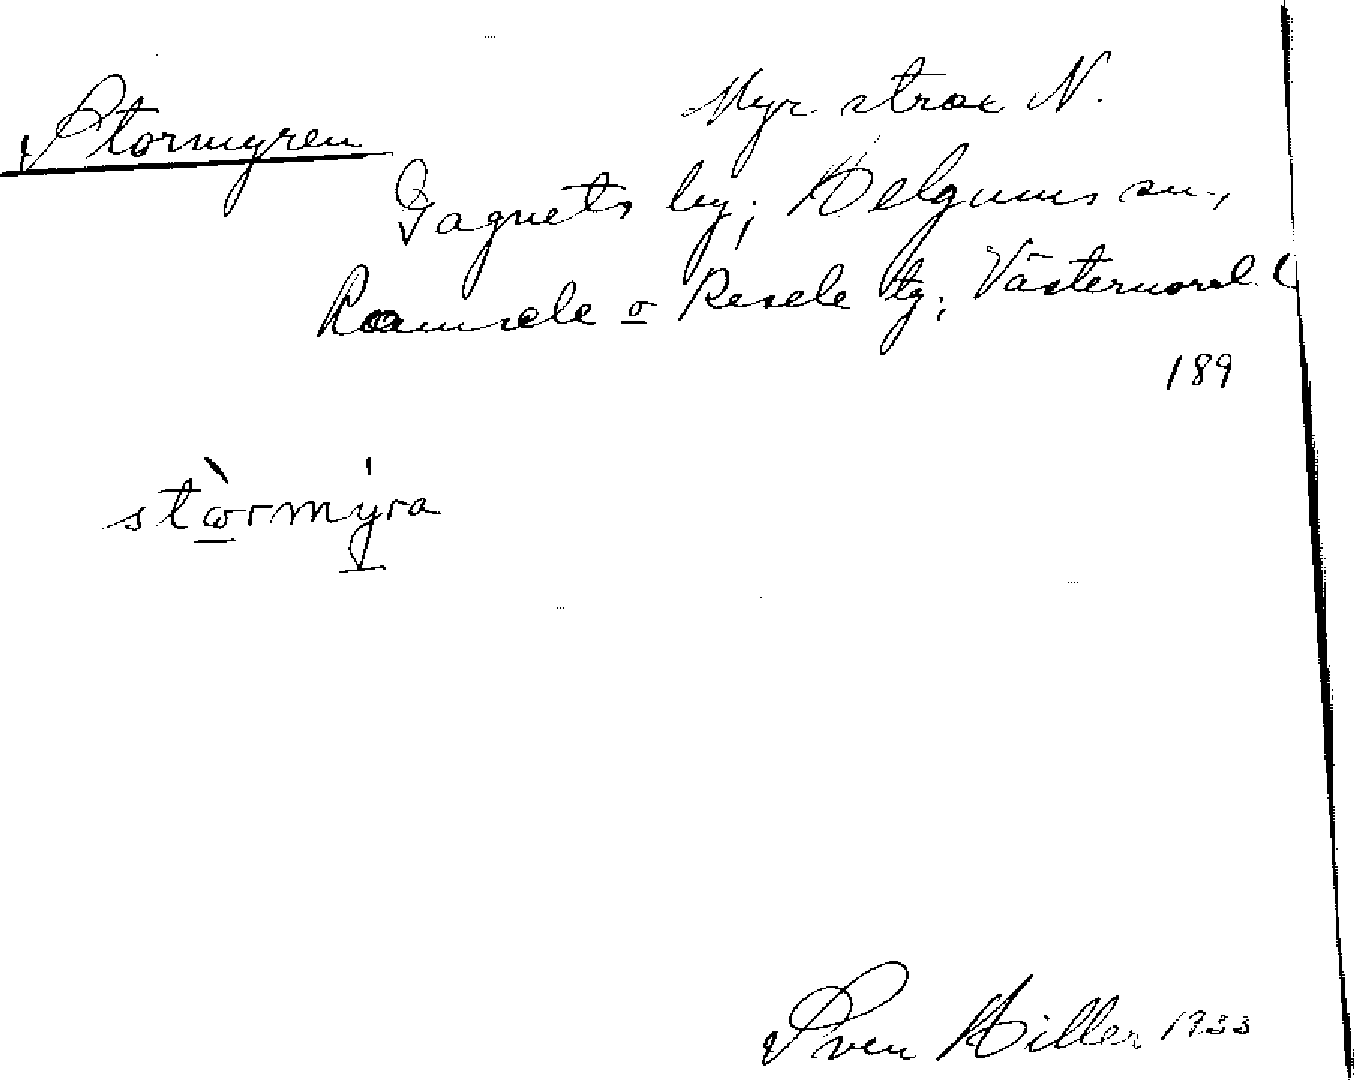 Stormyren
Myr strax N.
Gagnets by; Helgums sn.,
Ramsele o Resele tg; Västernorrl. l
189
stòrmýra
Sven Hiller 1933